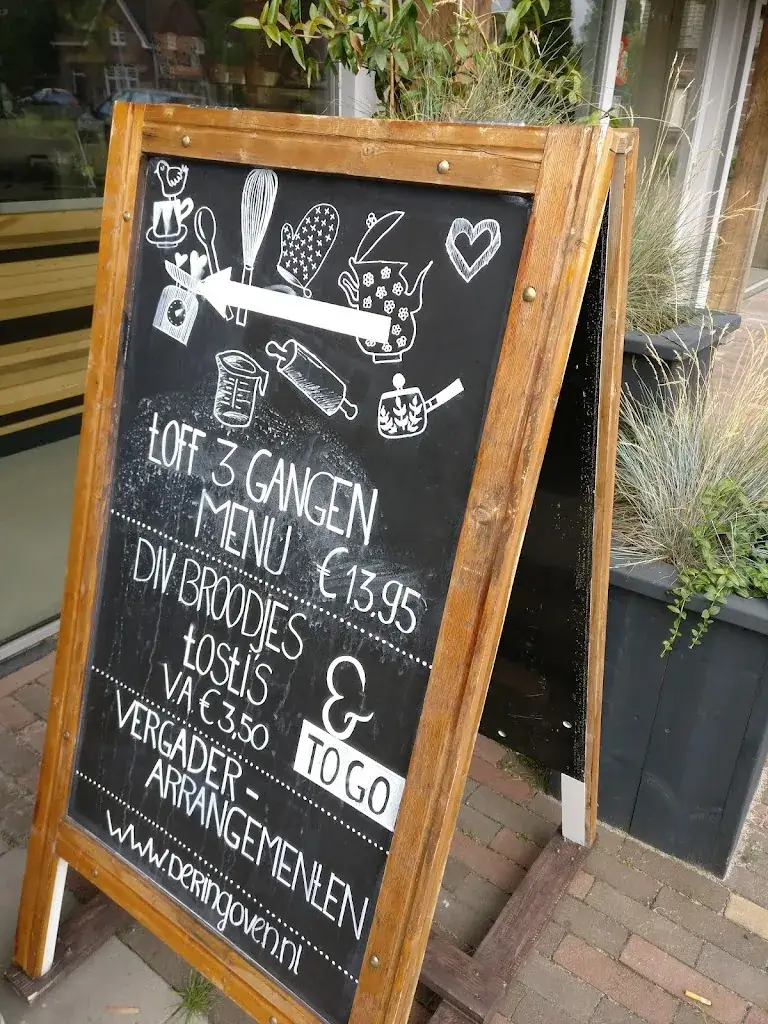 tOFF 3 GANGEN
MENU €13.95
DIV BROODJES
tOStiS
VA €3,50
&
TO GO
VERGADER-
ARRANGEMENtEN
www.DERINGOVEN.nl